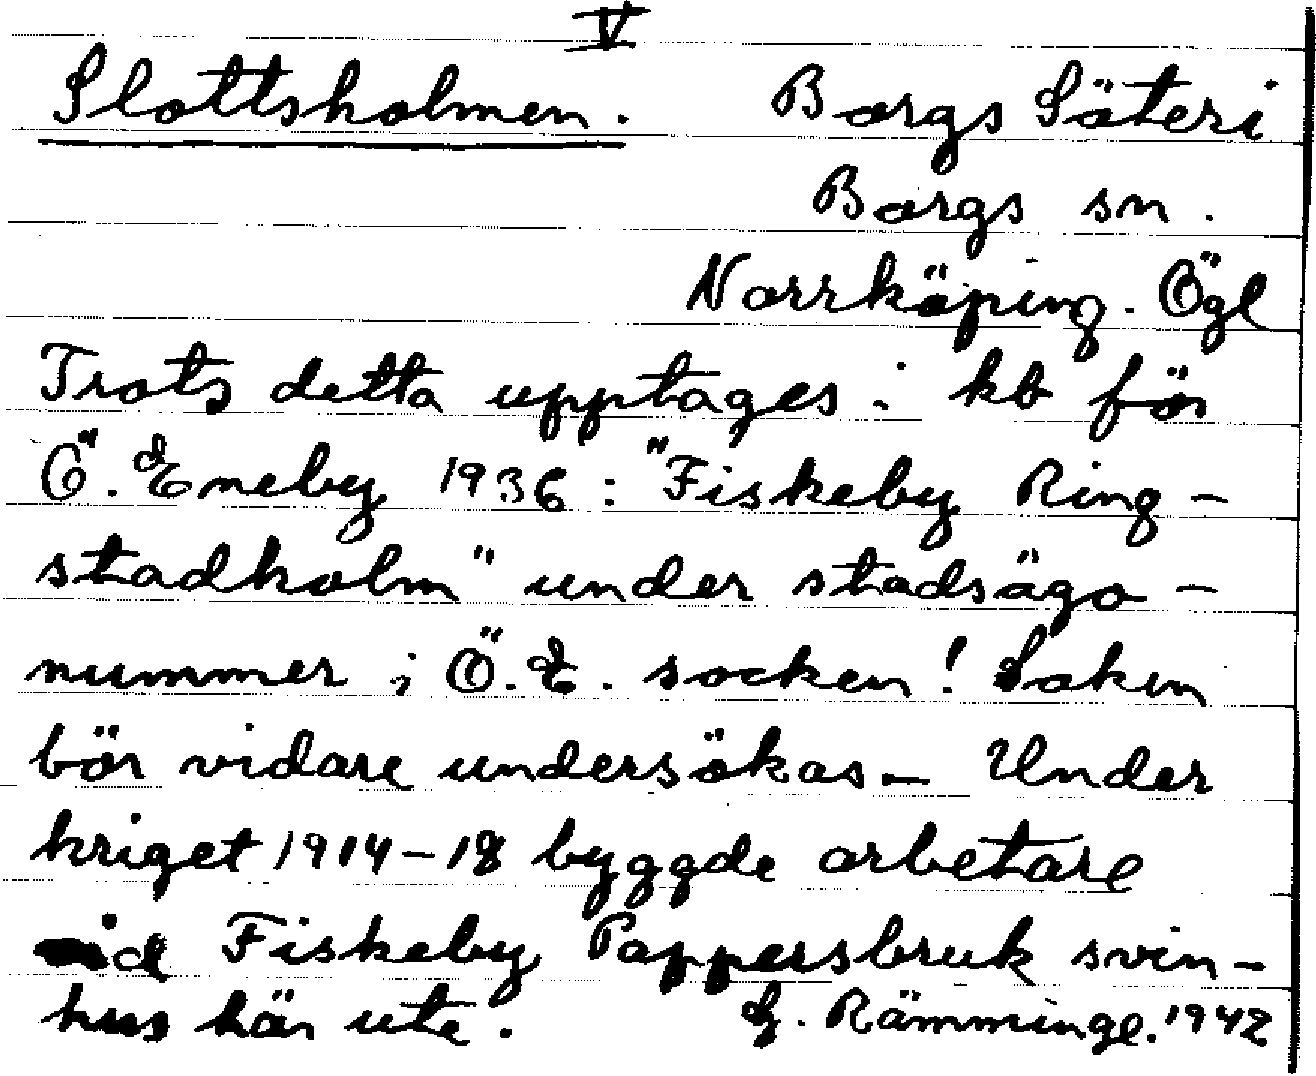 V
Slottsholmen. Borgs Säteri
Borgs sn.
Norrköping. Ögl
Trots detta upptages i kb för
Ö. Eneby 1936: "Fiskeby Ring-
stadholm" under stadsägo-
nummer i Ö.E. socken! Saken
bör vidare undersökas – Under
kriget 1914–18 byggde arbetare
vid Fiskeby Pappersbruk svin-
hus här ute. G. Rämminge. 1942